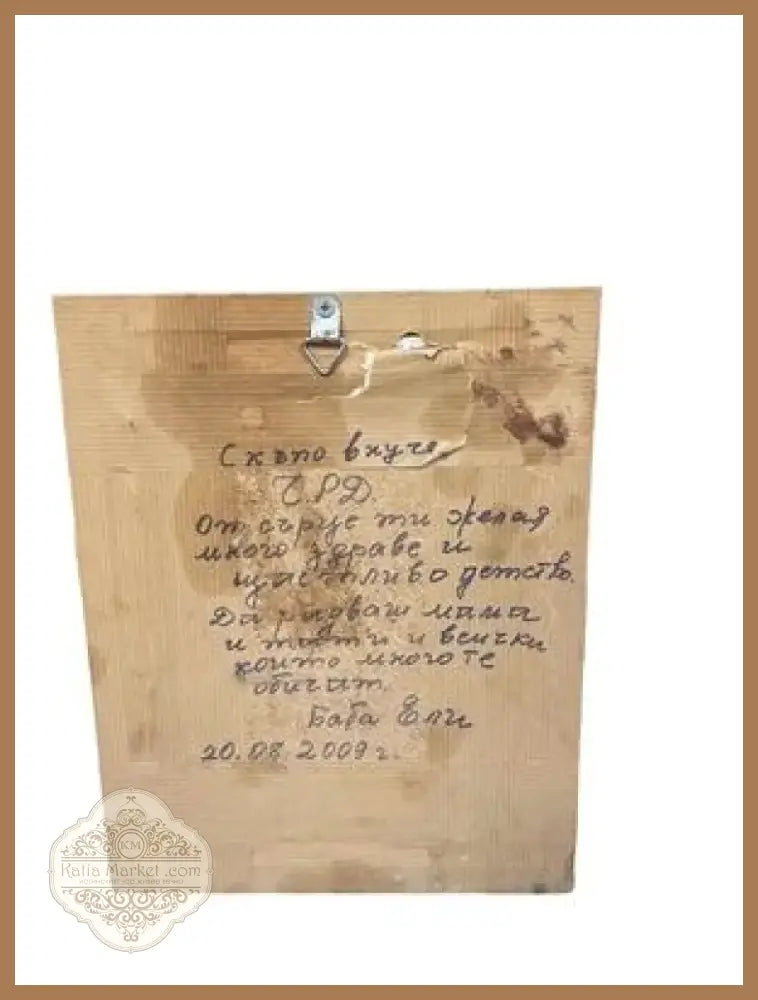 Скъпо внуче,
Ч.Р.Д.
От сърце ти желая
много здраве и
щастливо детство.
Да радваш мама
и тати и всички
които много те
обичат.
Баба Ели
20.08.2009 г.
KM
Katia Market .com